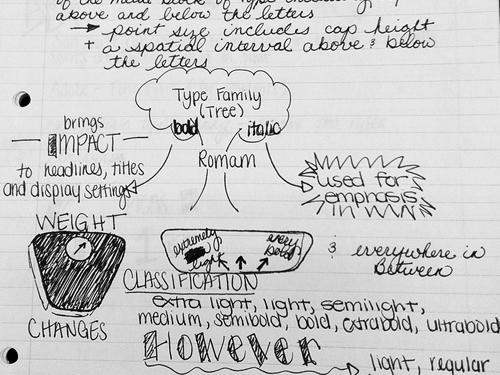 of the metal block of type
above and below the letters
→ point size includes cap height
+ a spatial interval above & below
the letters
Type Family
(Tree)
bold
italic
Roman
brings
IMPACT
to headlines, titles
and display settings
used for
emphasis
WEIGHT
CHANGES
extremely
light
every
bold
& everywhere in
between
CLASSIFICATION
extra light, light, semilight,
medium, semibold, bold, extrabold, ultrabold
However
light, regular